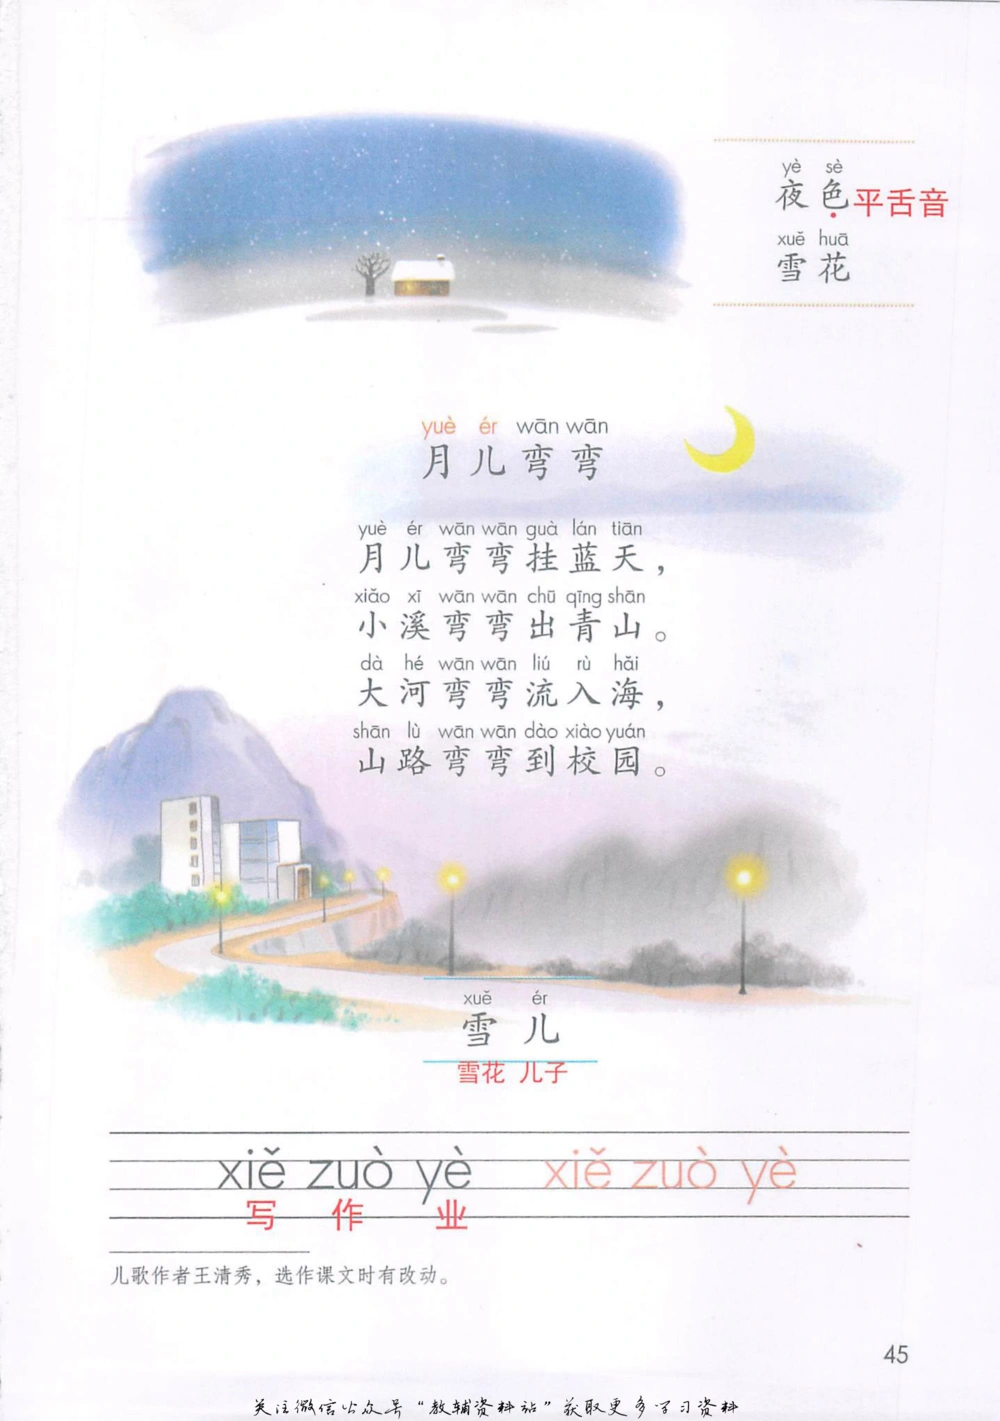 yè sè
夜色平舌音
xuě huā
雪花
yuè ér wān wān
月儿弯弯
yuè ér wān wān guà lán tiān
月儿弯弯挂蓝天，
xiǎo xī wān wān chū qīng shān
小溪弯弯出青山。
dà hé wān wān liú rù hǎi
大河弯弯流入海，
shān lù wān wān dào xiào yuán
山路弯弯到校园。
xuě ér
雪儿
雪花 儿子
xiě zuò yè xiě zuò yè
写 作 业
儿歌作者王清秀，选作课文时有改动。
45
关注微信公众号“教辅资料站”获取更多学习资料